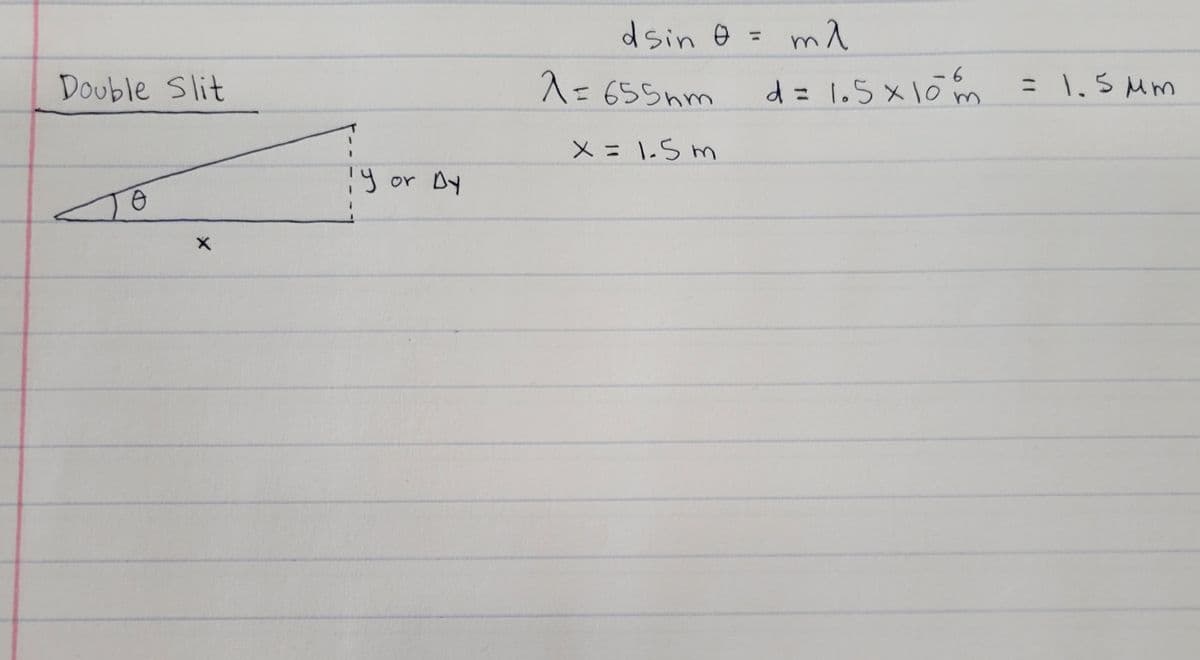 d sin θ = mλ
Double Slit
λ = 655nm d = 1.5 × 10⁻⁶ m = 1.5 μm
x = 1.5 m
y or Δy
θ
x